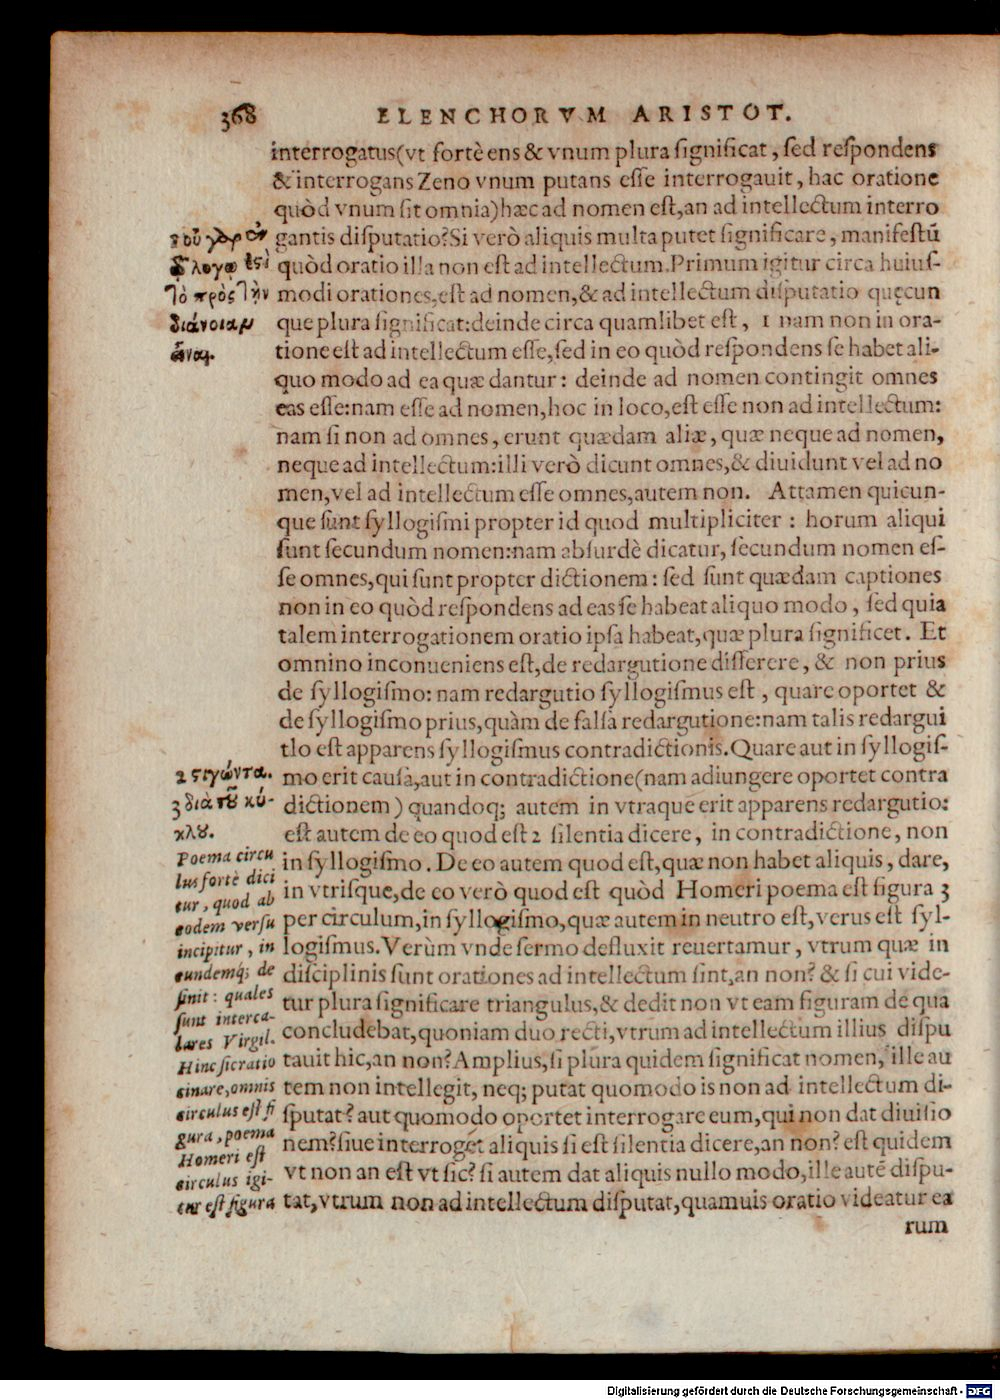 368 ELENCHORVM ARISTOT.
interrogatus(vt fortè ens & vnum plura ſignificat, ſed reſpondens
& interrogans Zeno vnum putans eſſe interrogauit, hac oratione
quòd vnum ſit omnia)hæc ad nomen eſt,an ad intellectum interro
gantis diſputatio?Si verò aliquis multa putet ſignificare, manifeſtū
quòd oratio illa non eſt ad intellectum.Primum igitur circa huiuſ-
modi orationes,eſt ad nomen,& ad intellectum diſputatio quęcun
que plura ſignificat:deinde circa quamlibet eſt, 1 nam non in ora-
tione eſt ad intellectum eſſe,ſed in eo quòd reſpondens ſe habet ali-
quo modo ad ea quæ dantur: deinde ad nomen contingit omnes
eas eſſe:nam eſſe ad nomen,hoc in loco,eſt eſſe non ad intellectum:
nam ſi non ad omnes, erunt quædam aliæ, quæ neque ad nomen,
neque ad intellectum:illi verò dicunt omnes,& diuidunt vel ad no
men,vel ad intellectum eſſe omnes,autem non. Attamen quicun-
que ſunt ſyllogiſmi propter id quod multipliciter : horum aliqui
ſunt ſecundum nomen:nam abſurdè dicatur, ſecundum nomen eſ-
ſe omnes,qui ſunt propter dictionem: ſed ſunt quædam captiones
non in eo quòd reſpondens ad eas ſe habeat aliquo modo, ſed quia
talem interrogationem oratio ipſa habeat,quæ plura ſignificet. Et
omnino inconueniens eſt,de redargutione diſſerere, & non prius
de ſyllogiſmo: nam redargutio ſyllogiſmus eſt, quare oportet &
de ſyllogiſmo prius,quàm de falſa redargutione:nam talis redargui
tlo eſt apparens ſyllogiſmus contradictionis.Quare aut in ſyllogiſ-
mo erit cauſa,aut in contradictione(nam adiungere oportet contra
dictionem) quandoq; autem in vtraque erit apparens redargutio:
eſt autem de eo quod eſt 2 ſilentia dicere, in contradictione, non
in ſyllogiſmo. De eo autem quod eſt,quæ non habet aliquis, dare,
in vtriſque,de eo verò quod eſt quòd Homeri poema eſt figura 3
per circulum,in ſyllogiſmo,quæ autem in neutro eſt,verus eſt ſyl-
logiſmus.Verùm vnde ſermo defluxit reuertamur, vtrum quæ in
diſciplinis ſunt orationes ad intellectum ſint,an non? & ſi cui vide-
tur plura ſignificare triangulus,& dedit non vt eam figuram de qua
concludebat,quoniam duo recti,vtrum ad intellectum illius diſpu
tauit hic,an non?Amplius,ſi plura quidem ſignificat nomen, ille au
tem non intellegit, neq; putat quomodo is non ad intellectum di-
ſputat? aut quomodo oportet interrogare eum,qui non dat diuiſio
nem?ſiue interroget aliquis ſi eſt ſilentia dicere,an non? eſt quidem
vt non an eſt vt ſic? ſi autem dat aliquis nullo modo,ille autē diſpu-
tat,vtrum non ad intellectum diſputat,quamuis oratio videatur ea
rum
τὸ πρὸς τὴν
διάνοιαν
εἶναι.
2 σιγῶντα.
3 διὰ τοῦ κύ-
κλου.
Poema circu
lus fortè dici
tur, quod ab
eodem verſu
incipitur, in
eundemq; de
ſinit: quales
ſunt interca-
lares Virgil.
Hinc ſic ratio
cinare,omnis
circulus eſt fi
gura, poema
Homeri eſt
circulus igi-
tur eſt figura
Digitalisierung gefördert durch die Deutsche Forschungsgemeinschaft - DFG